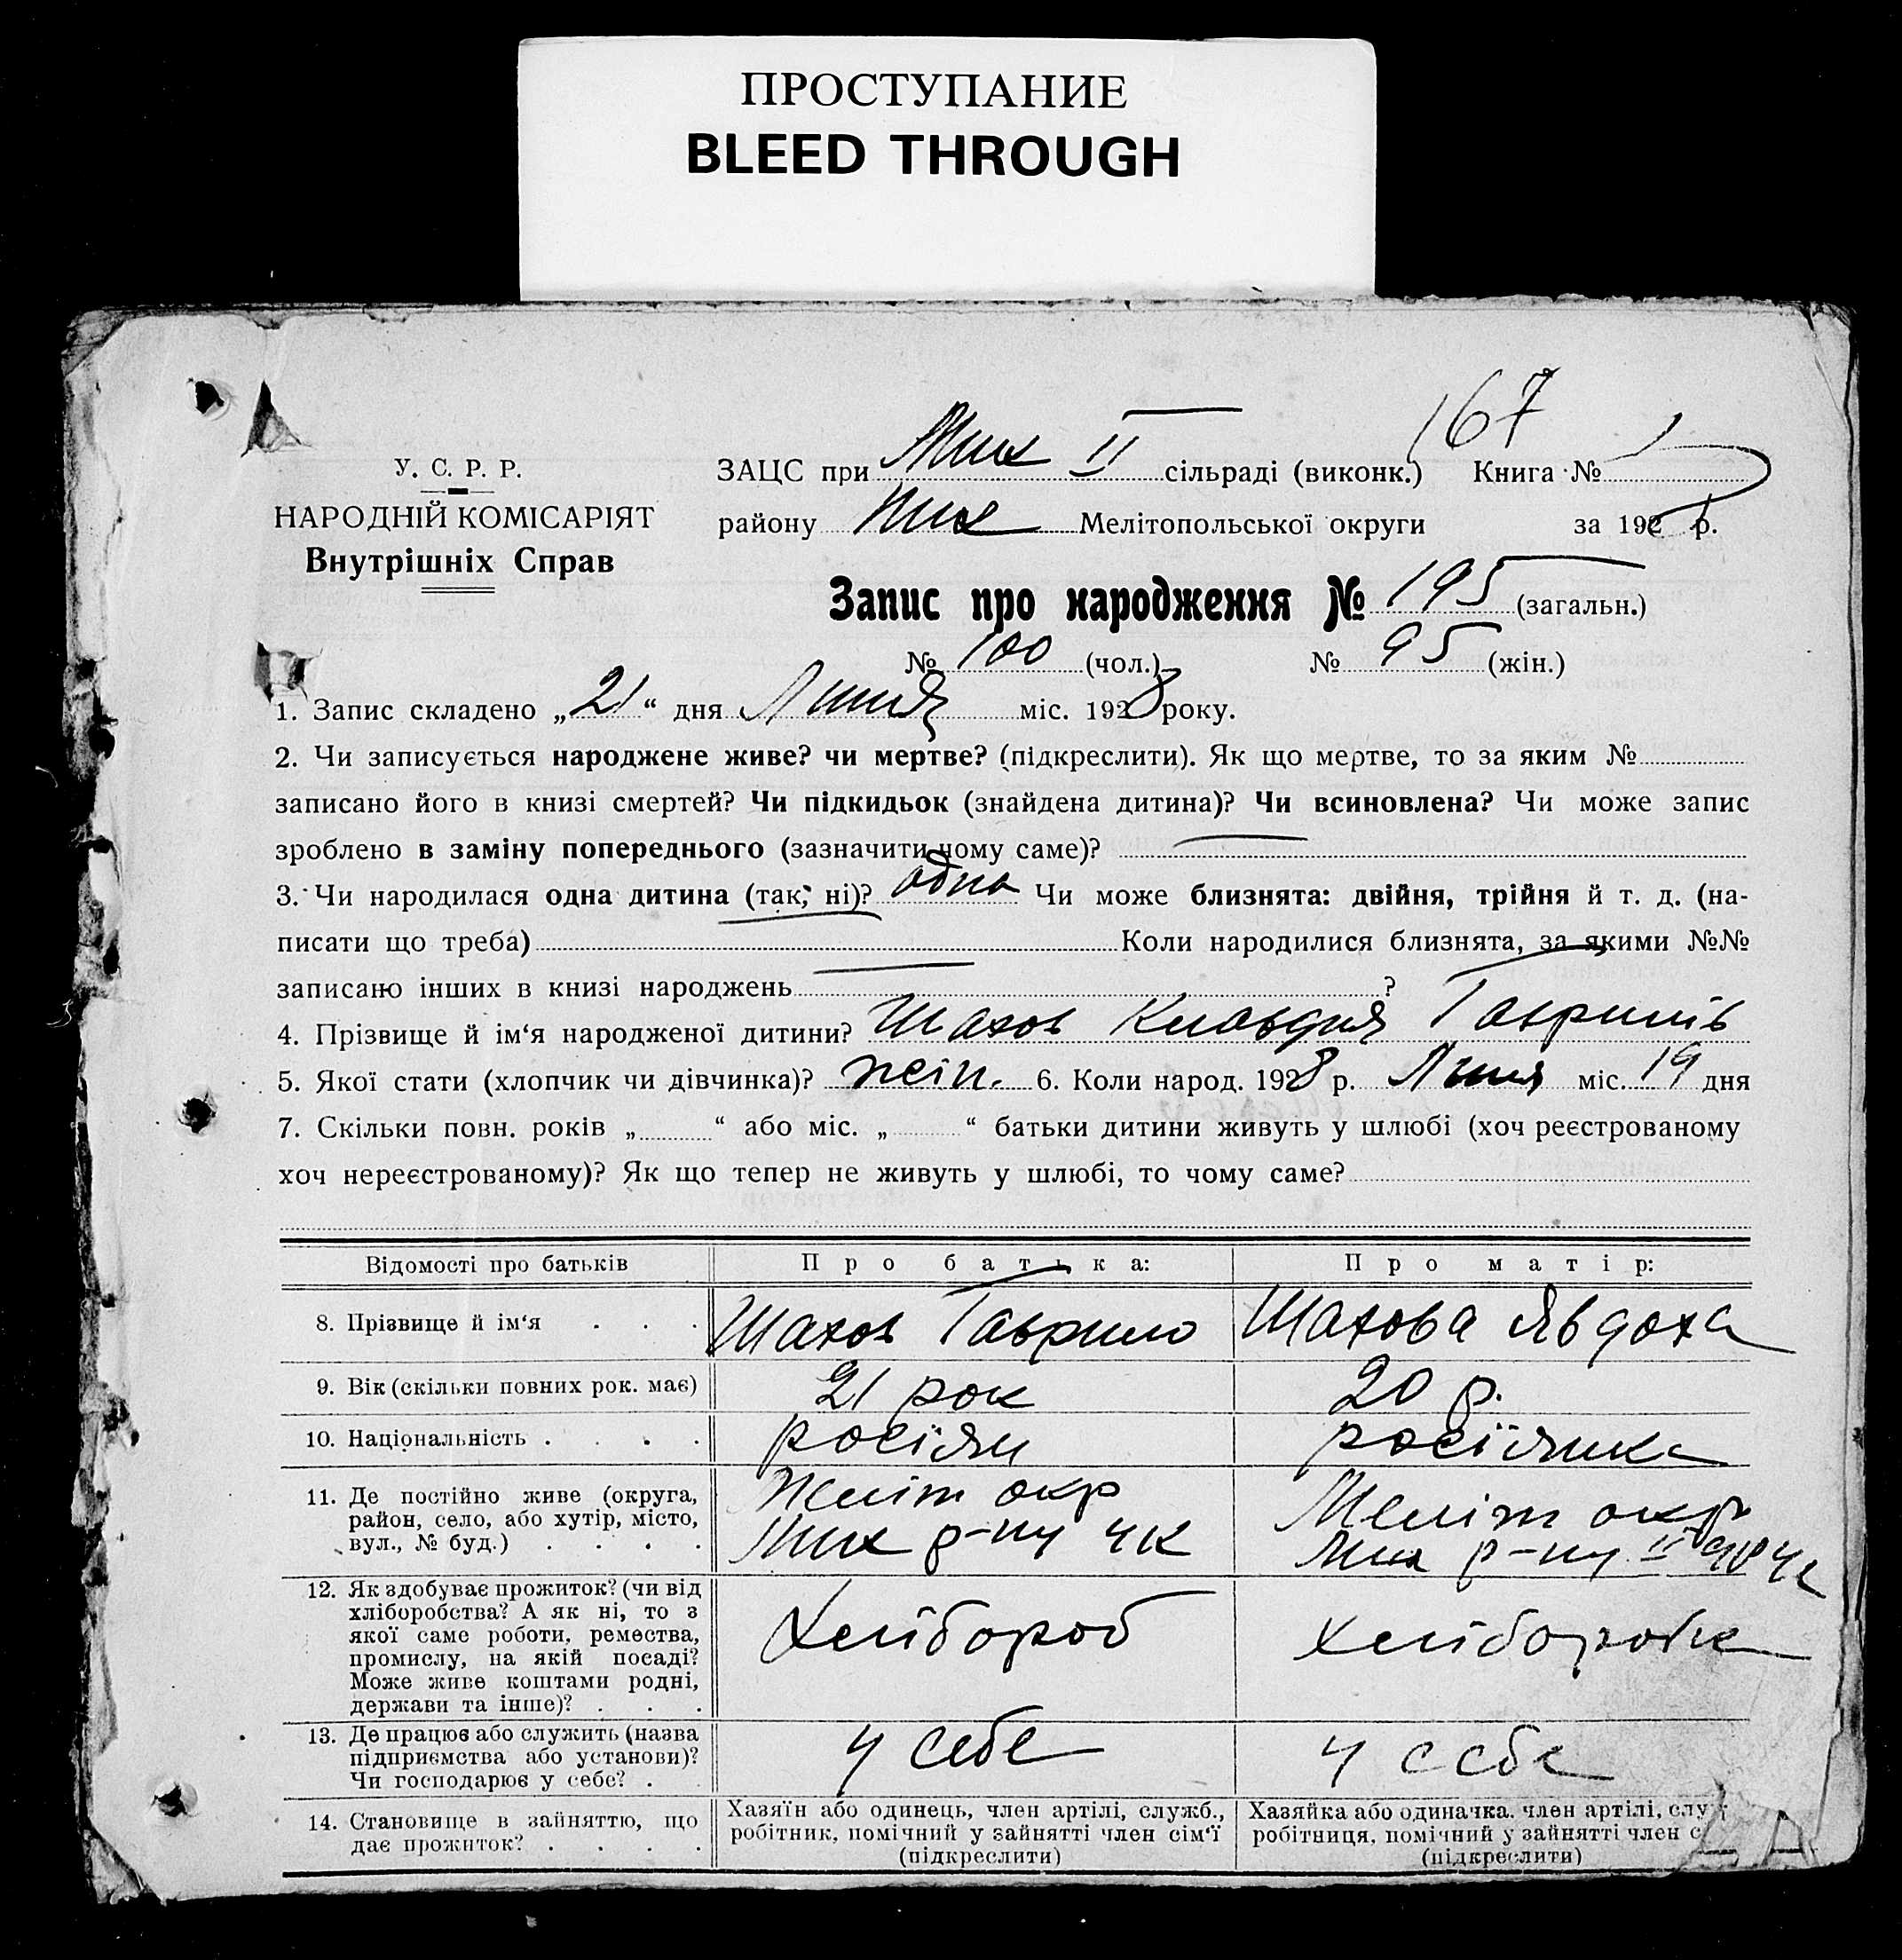 ПРОСТУПАНИЕ
BLEED THROUGH
167
У. С. Р. Р.
НАРОДНІЙ КОМІСАРІЯТ
Внутрішніх Справ
ЗАЦС при Мих II сільраді (виконк.) Книга №
району Мих Мелітопольської округи за 192 р.
Запис про народження № 195 (загальн.)
№ 100 (чол.) № 95 (жін.)
1. Запис складено „21“ дня Липня міс. 1928 року.
2. Чи записується народжене живе? чи мертве? (підкреслити). Як що мертве, то за яким №
записано його в книзі смертей? Чи підкидьок (знайдена дитина)? Чи всиновлена? Чи може запис
зроблено в заміну попереднього (зазначити чому саме)?
3. Чи народилася одна дитина (так, ні)? одна Чи може близнята: двійня, трійня й т. д. (на-
писати що треба) Коли народилися близнята, за якими №№
записано інших в книзі народжень ?
4. Прізвище й ім‘я народженої дитини? Шахов Клавдия Гаврилів
5. Якої стати (хлопчик чи дівчинка)? жін. 6. Коли народ. 1928 р. Липня міс. 19 дня
7. Скільки повн. років „ “ або міс. „ “ батьки дитини живуть у шлюбі (хоч реєстрованому
хоч нереєстрованому)? Як що тепер не живуть у шлюбі, то чому саме?
Відомості про батьків Про батька: Про матір:
8. Прізвище й ім‘я . . . Шахов Гаврило Шахова Явдоха
9. Вік (скільки повних рок. має) 21 рок 20 р.
10. Національність . . . . росіян росіянка
11. Де постійно живе (округа,
район, село, або хутір, місто,
вул., № буд.) . . . .
Меліт окр
Мих р-ну
Меліт окр
Мих р-ну II
12. Як здобуває прожиток? (чи від
хліборобства? А як ні, то з
якої саме роботи, ремества,
промислу, на якій посаді?
Може живе коштами родні,
держави та інше)? . . .
Хлібороб
хліборобк
13. Де працює або служить (назва
підприємства або установи)?
Чи господарює у себе? .
у себе
у себе
14. Становище в зайняттю, що
дає прожиток? . . . .
Хазяїн або одинець, член артілі, служб.,
робітник, помічний у зайнятті член сім‘ї
(підкреслити)
Хазяйка або одиначка, член артілі, слу
робітниця, помічний у зайнятті член с
(підкреслити)